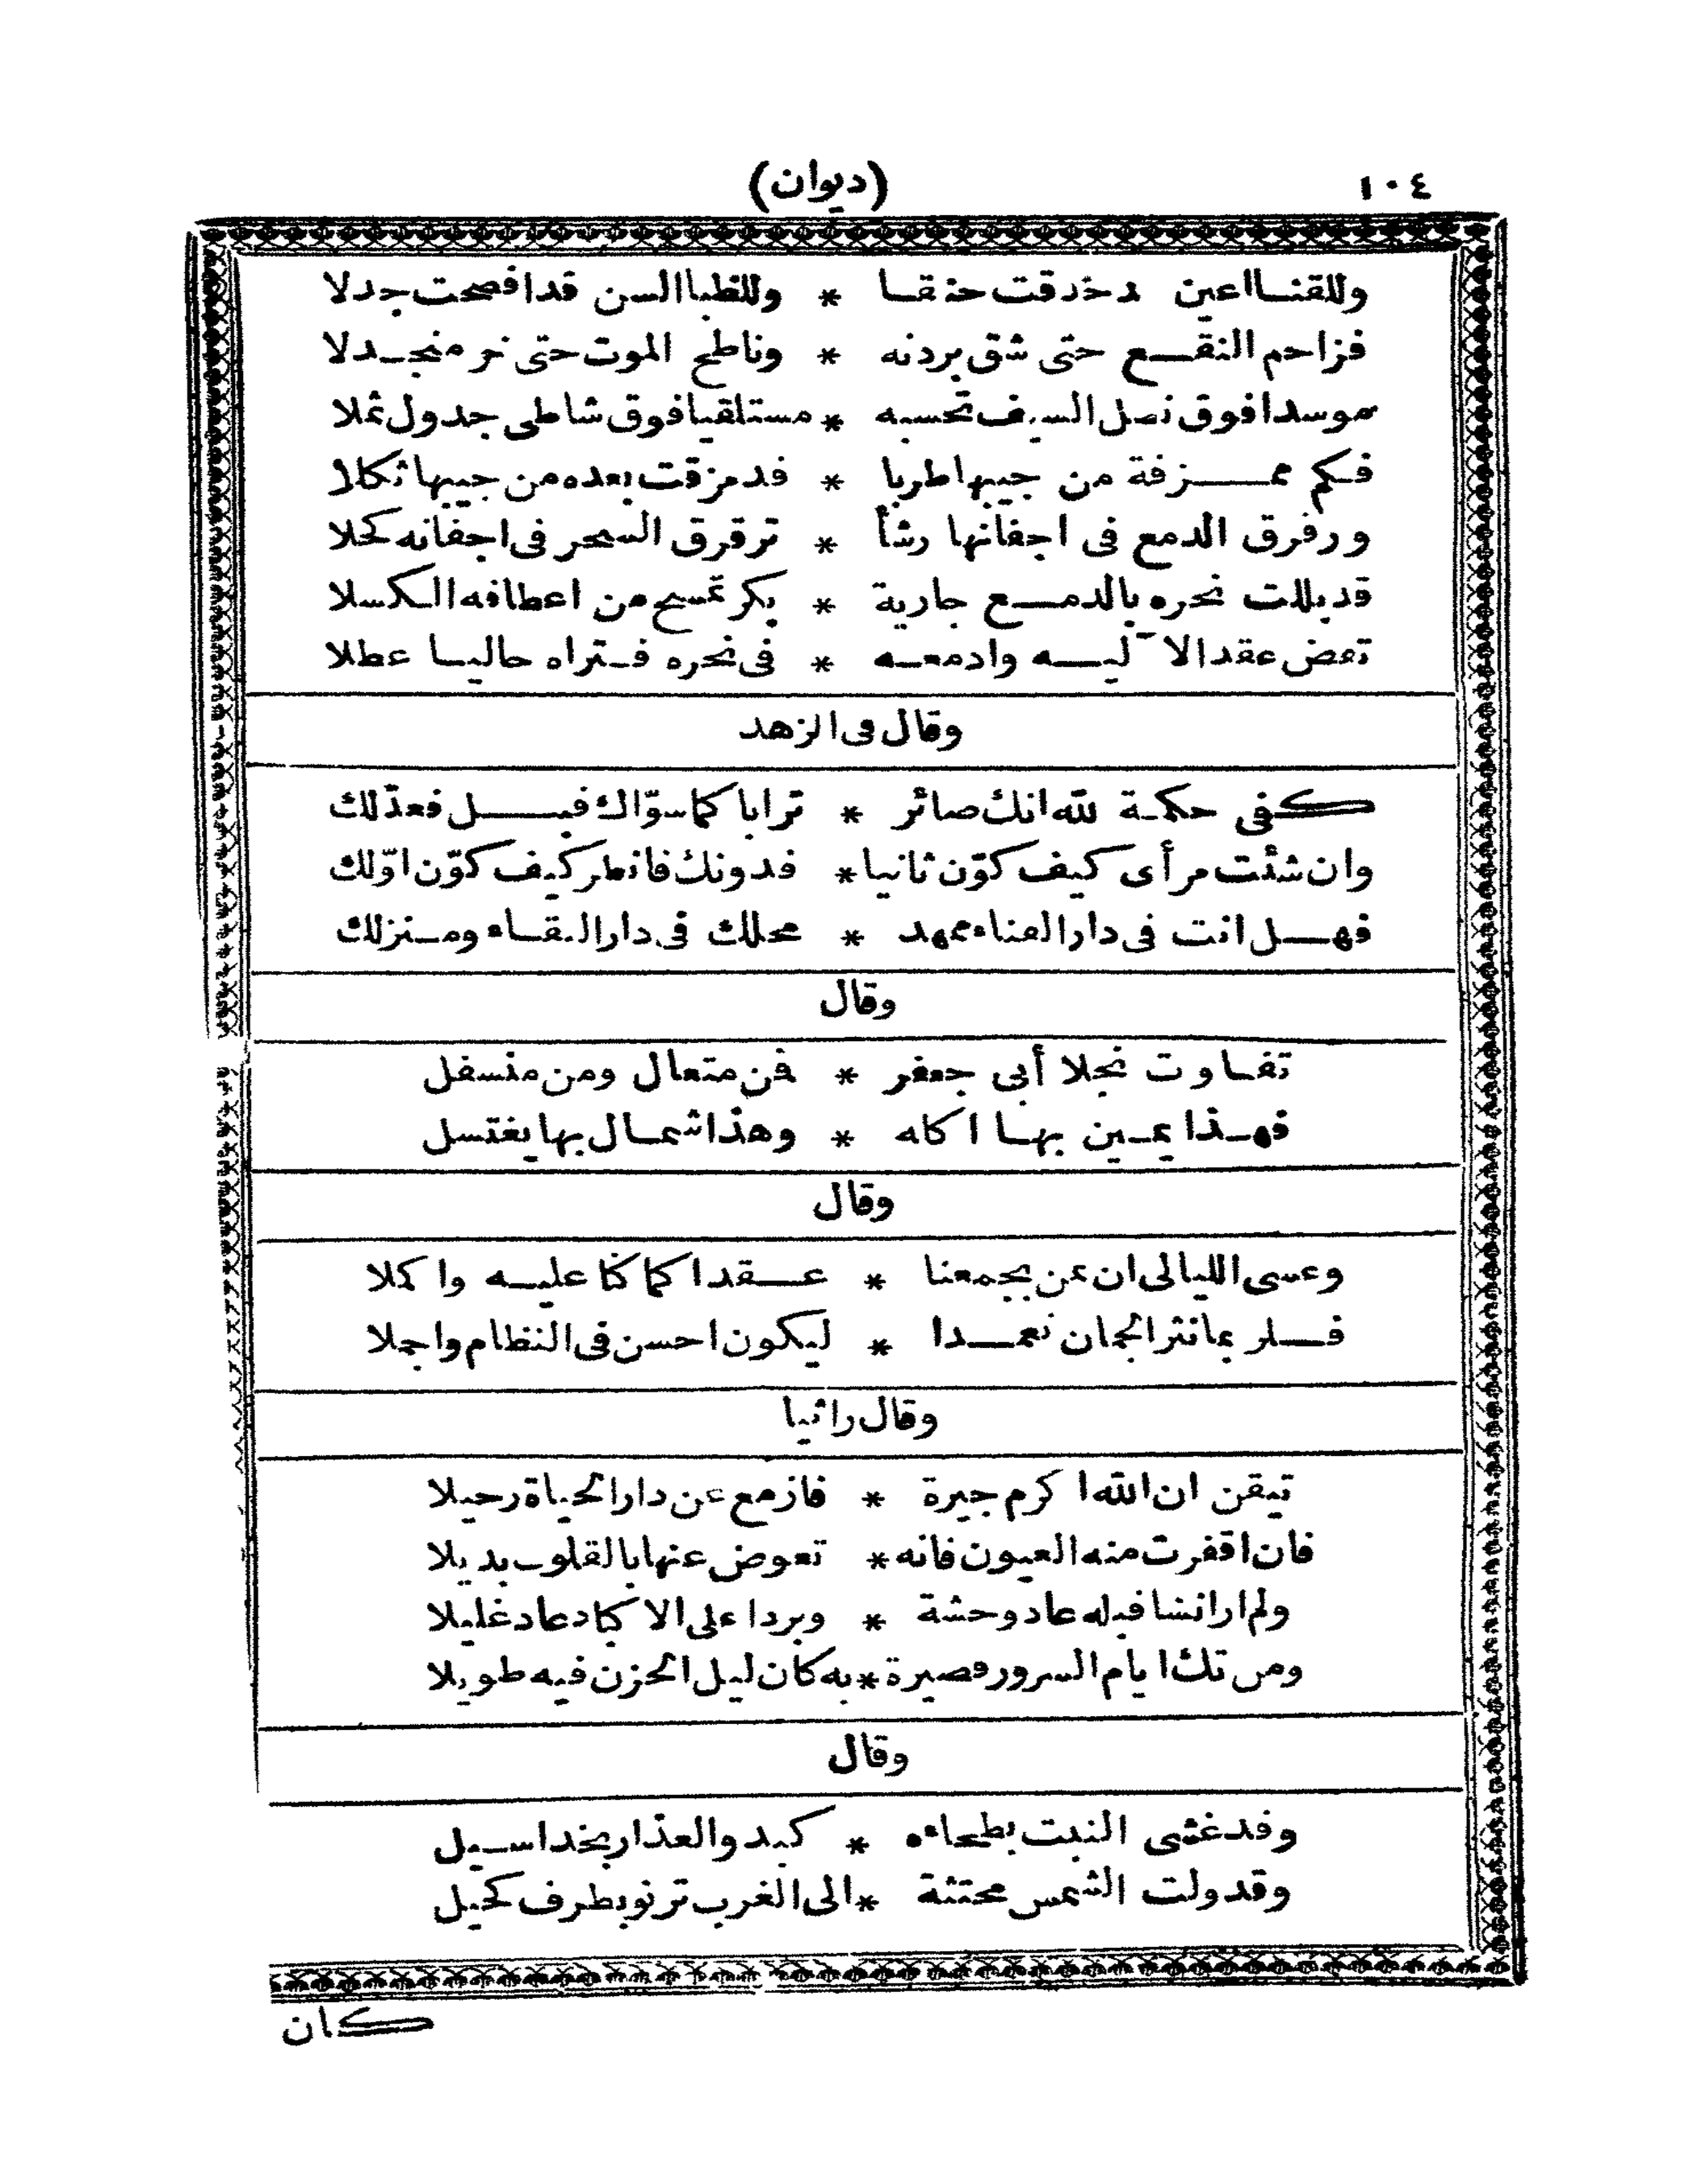 ١٠٤
(ديوان)
وللقنا اعين خزرقت حنقا * وللظبا السن قد افصحت جدلا
فزاحم النقع حتى شق بردنه * وناطح الموت حتى خر منجدلا
موسدا فوق نصل السيف تحسبه * مستلقيا فوق شاطى جدول ثملا
فكم ممزقة من جيبها طربا * قد مزقت بعده من جيبها ثكلا
ورقرق الدمع فى اجفانها رشأ * ترقرق السحر فى اجفانه كحلا
قد بللت نحره بالدمع جارية * بكر تمسح من اعطافه الكسلا
تفض عقد الآليه وادمعه * فى نحره فتراه حاليا عطلا
وقال فى الزهد
كفى حكمة لله انك صائر * ترابا كما سوّاك قبل فعدّلك
وان شئت مرأى كيف كوّن ثانيا * فدونك فانظر كيف كوّن اوّلك
فهل انت فى دار الفناء ممهد * محلك فى دار البقاء ومنزلك
وقال
تفاوت نجلا أبى جعفر * فمن متعال ومن منسفل
فهذا يمين بها اكله * وهذا شمال بها يغتسل
وقال
وعسى الليالى ان تمن بجمعنا * عقدا كما كنا عليه واكملا
فلربما نثر الجمان تعمدا * ليكون احسن فى النظام واجملا
وقال راثيا
تيقن ان الله اكرم جيرة * فازمع عن دار الحياة رحيلا
فان اقفرت منه العيون فانه * تعوض عنها بالقلوب بديلا
ولم ار انسا قبله عاد وحشة * وبردا على الاكباد عاد غليلا
ومن تك ايام السرور قصيرة * به كان ليل الحزن فيه طويلا
وقال
وقد غشى النبت بطحاءه * كبدو العذار بخد اسيل
وقد ولت الشمس محتثة * الى الغرب ترنو بطرف كحيل
كان